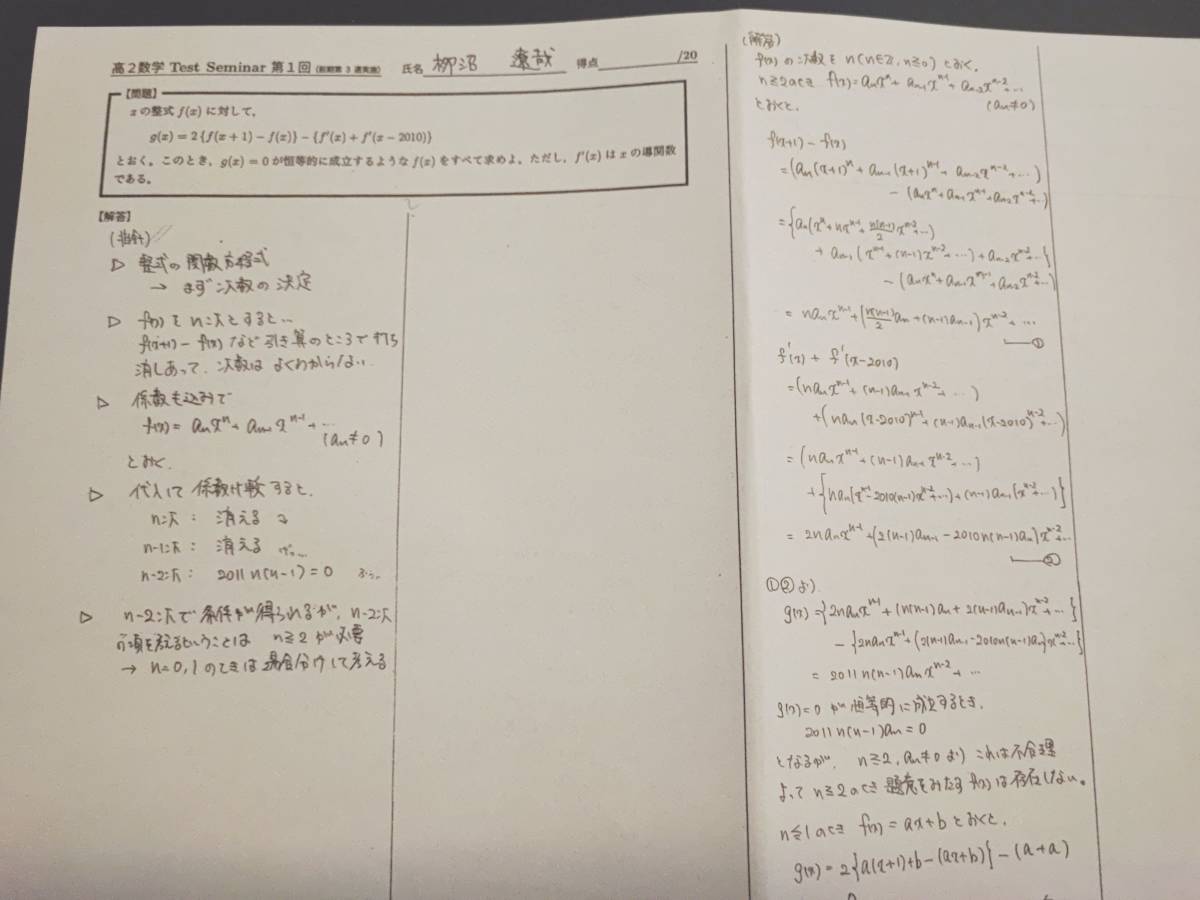 高2数学 Test Seminar 第1回 (前期第3週実施) 氏名 柳沼 遼哉 得点 /20
【問題】
xの整式 f(x) に対して,
g(x) = 2{f(x+1) - f(x)} - {f'(x) + f'(x-2010)}
とおく。このとき, g(x) = 0 が恒等的に成立するような f(x) をすべて求めよ。ただし, f'(x) は x の導関数
である。
【解答】
(指針)
▷ 整式の関数方程式
→ まず次数の決定
▷ f(x)をn次とすると…
f(x+1)-f(x)など引き算のところで打ち
消しあって、次数はよくわからない
▷ 係数も込みで
f(x) = aₙxⁿ + aₙ₋₁xⁿ⁻¹ + …
(aₙ≠0)
とおく.
▷ 代入して係数比較すると、
n次: 消える
n-1次: 消える
n-2次: 2011n(n-1)=0
▷ n-2次で条件が得られるが, n-2次
の項を考えるということは n≧2が必要
→ n=0,1のときは場合分けして考える
(解答)
f(x)の次数をn(n∈ℤ, n≧0)とおく.
n≧2のとき f(x)=aₙxⁿ+aₙ₋₁xⁿ⁻¹+aₙ₋₂xⁿ⁻²+…
とおくと. (aₙ≠0)
f(x+1)-f(x)
=(aₙ(x+1)ⁿ+aₙ₋₁(x+1)ⁿ⁻¹+aₙ₋₂xⁿ⁻²+…)
-(aₙxⁿ+aₙ₋₁xⁿ⁻¹+aₙ₋₂xⁿ⁻²+…)
={aₙ(xⁿ+nxⁿ⁻¹+n(n-1)/2 xⁿ⁻²+…)
+aₙ₋₁(xⁿ⁻¹+(n-1)xⁿ⁻²+…)+aₙ₋₂xⁿ⁻²…}
-(aₙxⁿ+aₙ₋₁xⁿ⁻¹+aₙ₋₂xⁿ⁻²+…)
=naₙxⁿ⁻¹+(n(n-1)/2 aₙ+(n-1)aₙ₋₁)xⁿ⁻²+…
①
f'(x)+f'(x-2010)
=(naₙxⁿ⁻¹+(n-1)aₙ₋₁xⁿ⁻²+…)
+(naₙ(x-2010)ⁿ⁻¹+(n-1)aₙ₋₁(x-2010)ⁿ⁻²+…)
=(naₙxⁿ⁻¹+(n-1)aₙ₋₁xⁿ⁻²+…)
+{naₙ(xⁿ⁻¹-2010(n-1)xⁿ⁻²+…)+(n-1)aₙ₋₁(xⁿ⁻²+…)}
=2naₙxⁿ⁻¹+(2(n-1)aₙ₋₁-2010n(n-1)aₙ)xⁿ⁻²+…
②
①②より
g(x)={2naₙxⁿ⁻¹+(n(n-1)aₙ+2(n-1)aₙ₋₁)xⁿ⁻²+…}
-{2naₙxⁿ⁻¹+(2(n-1)aₙ₋₁-2010n(n-1)aₙ)xⁿ⁻²+…}
=2011n(n-1)aₙxⁿ⁻²+…
g(x)=0が恒等的に成立するとき,
2011n(n-1)aₙ=0
となるが, n≧2, aₙ≠0より これは不合理
よってn≧2のとき題意をみたすf(x)は存在しない。
n≦1のとき f(x)=ax+bとおくと,
g(x)=2{a(x+1)+b-(ax+b)}-(a+a)